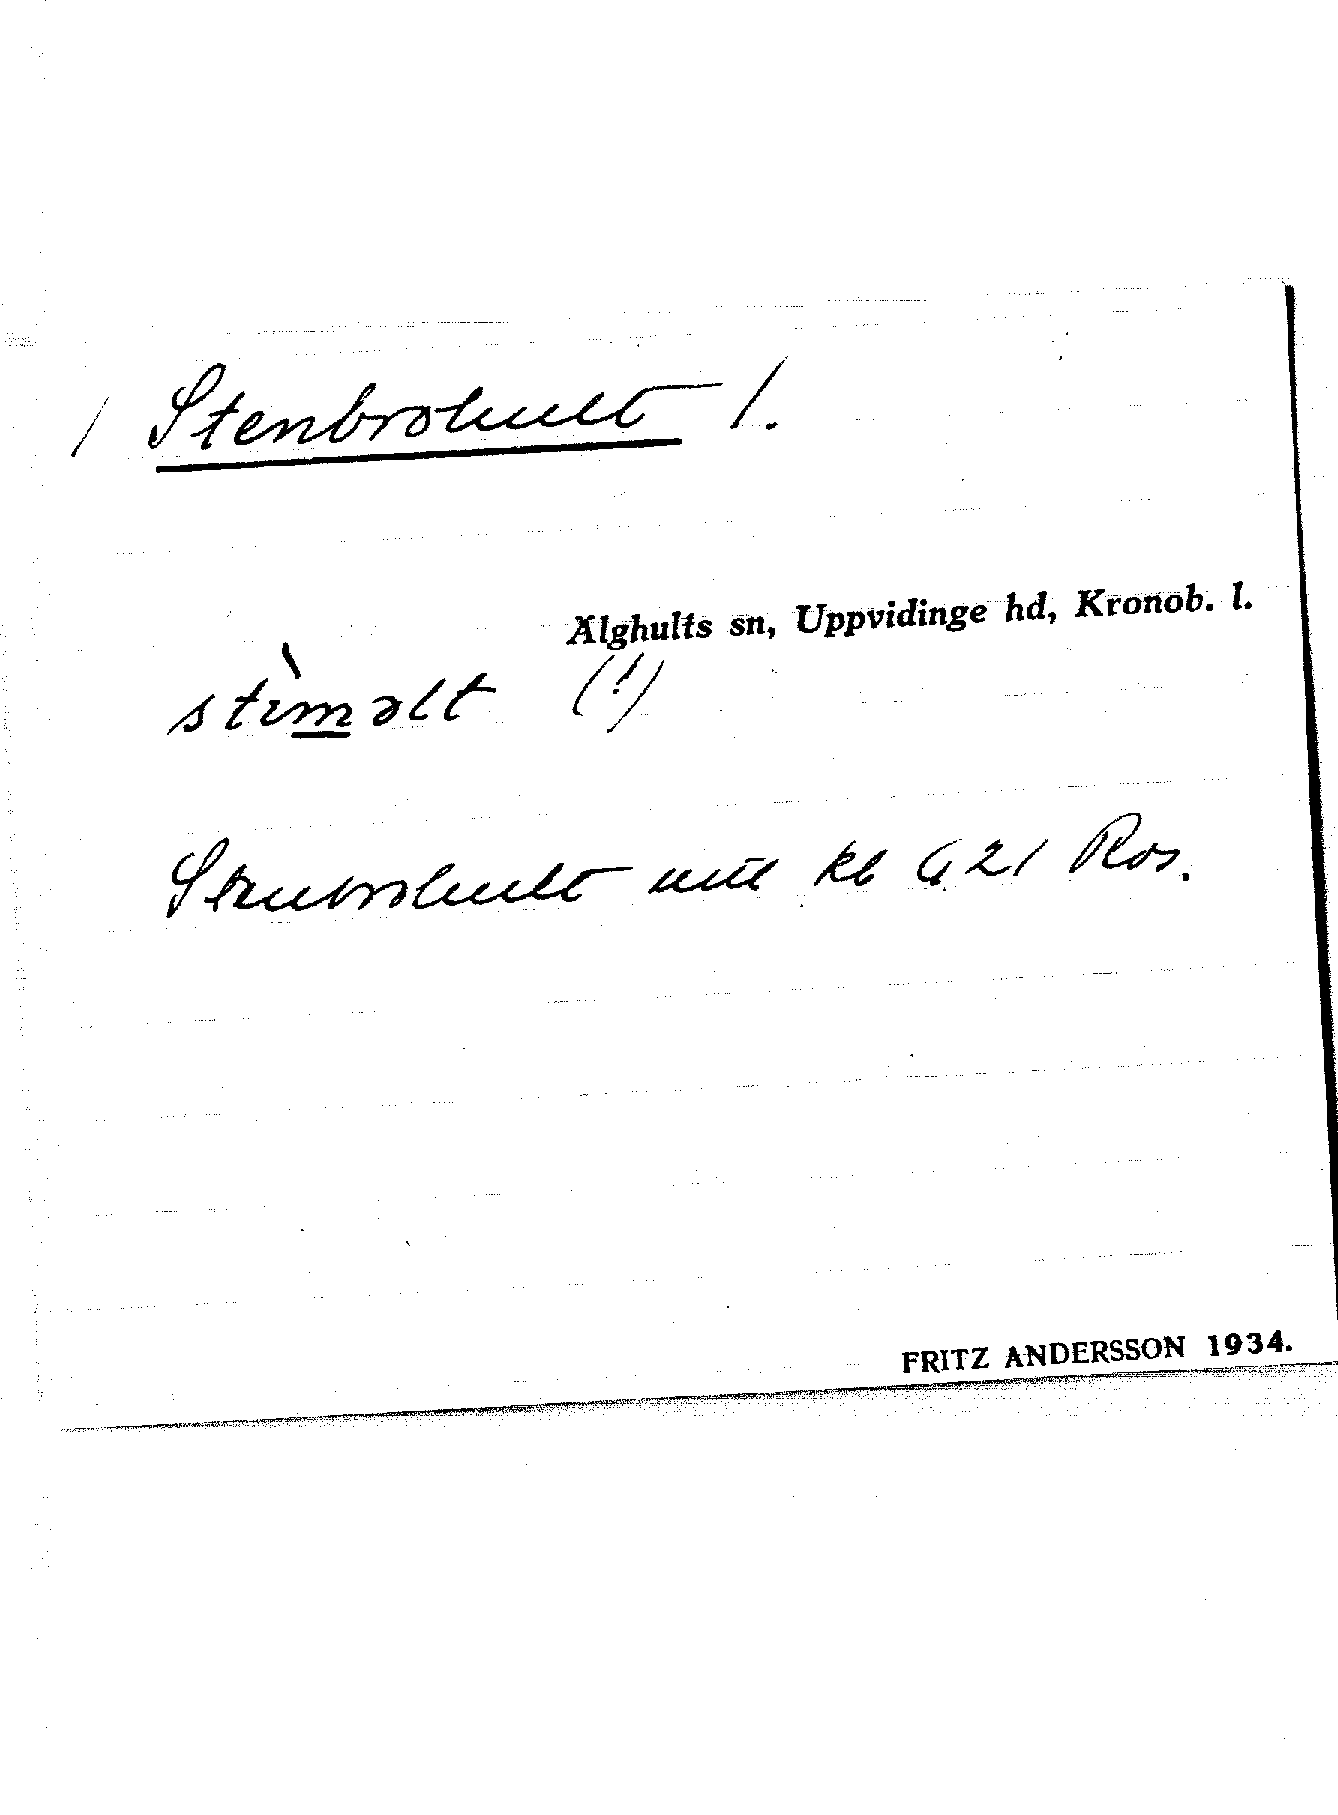 / Stenbrohult /.
Älghults sn, Uppvidinge hd, Kronob. l.
stìməlt (!)
Stenbrohult mtl kb G 21 Ros.
FRITZ ANDERSSON 1934.